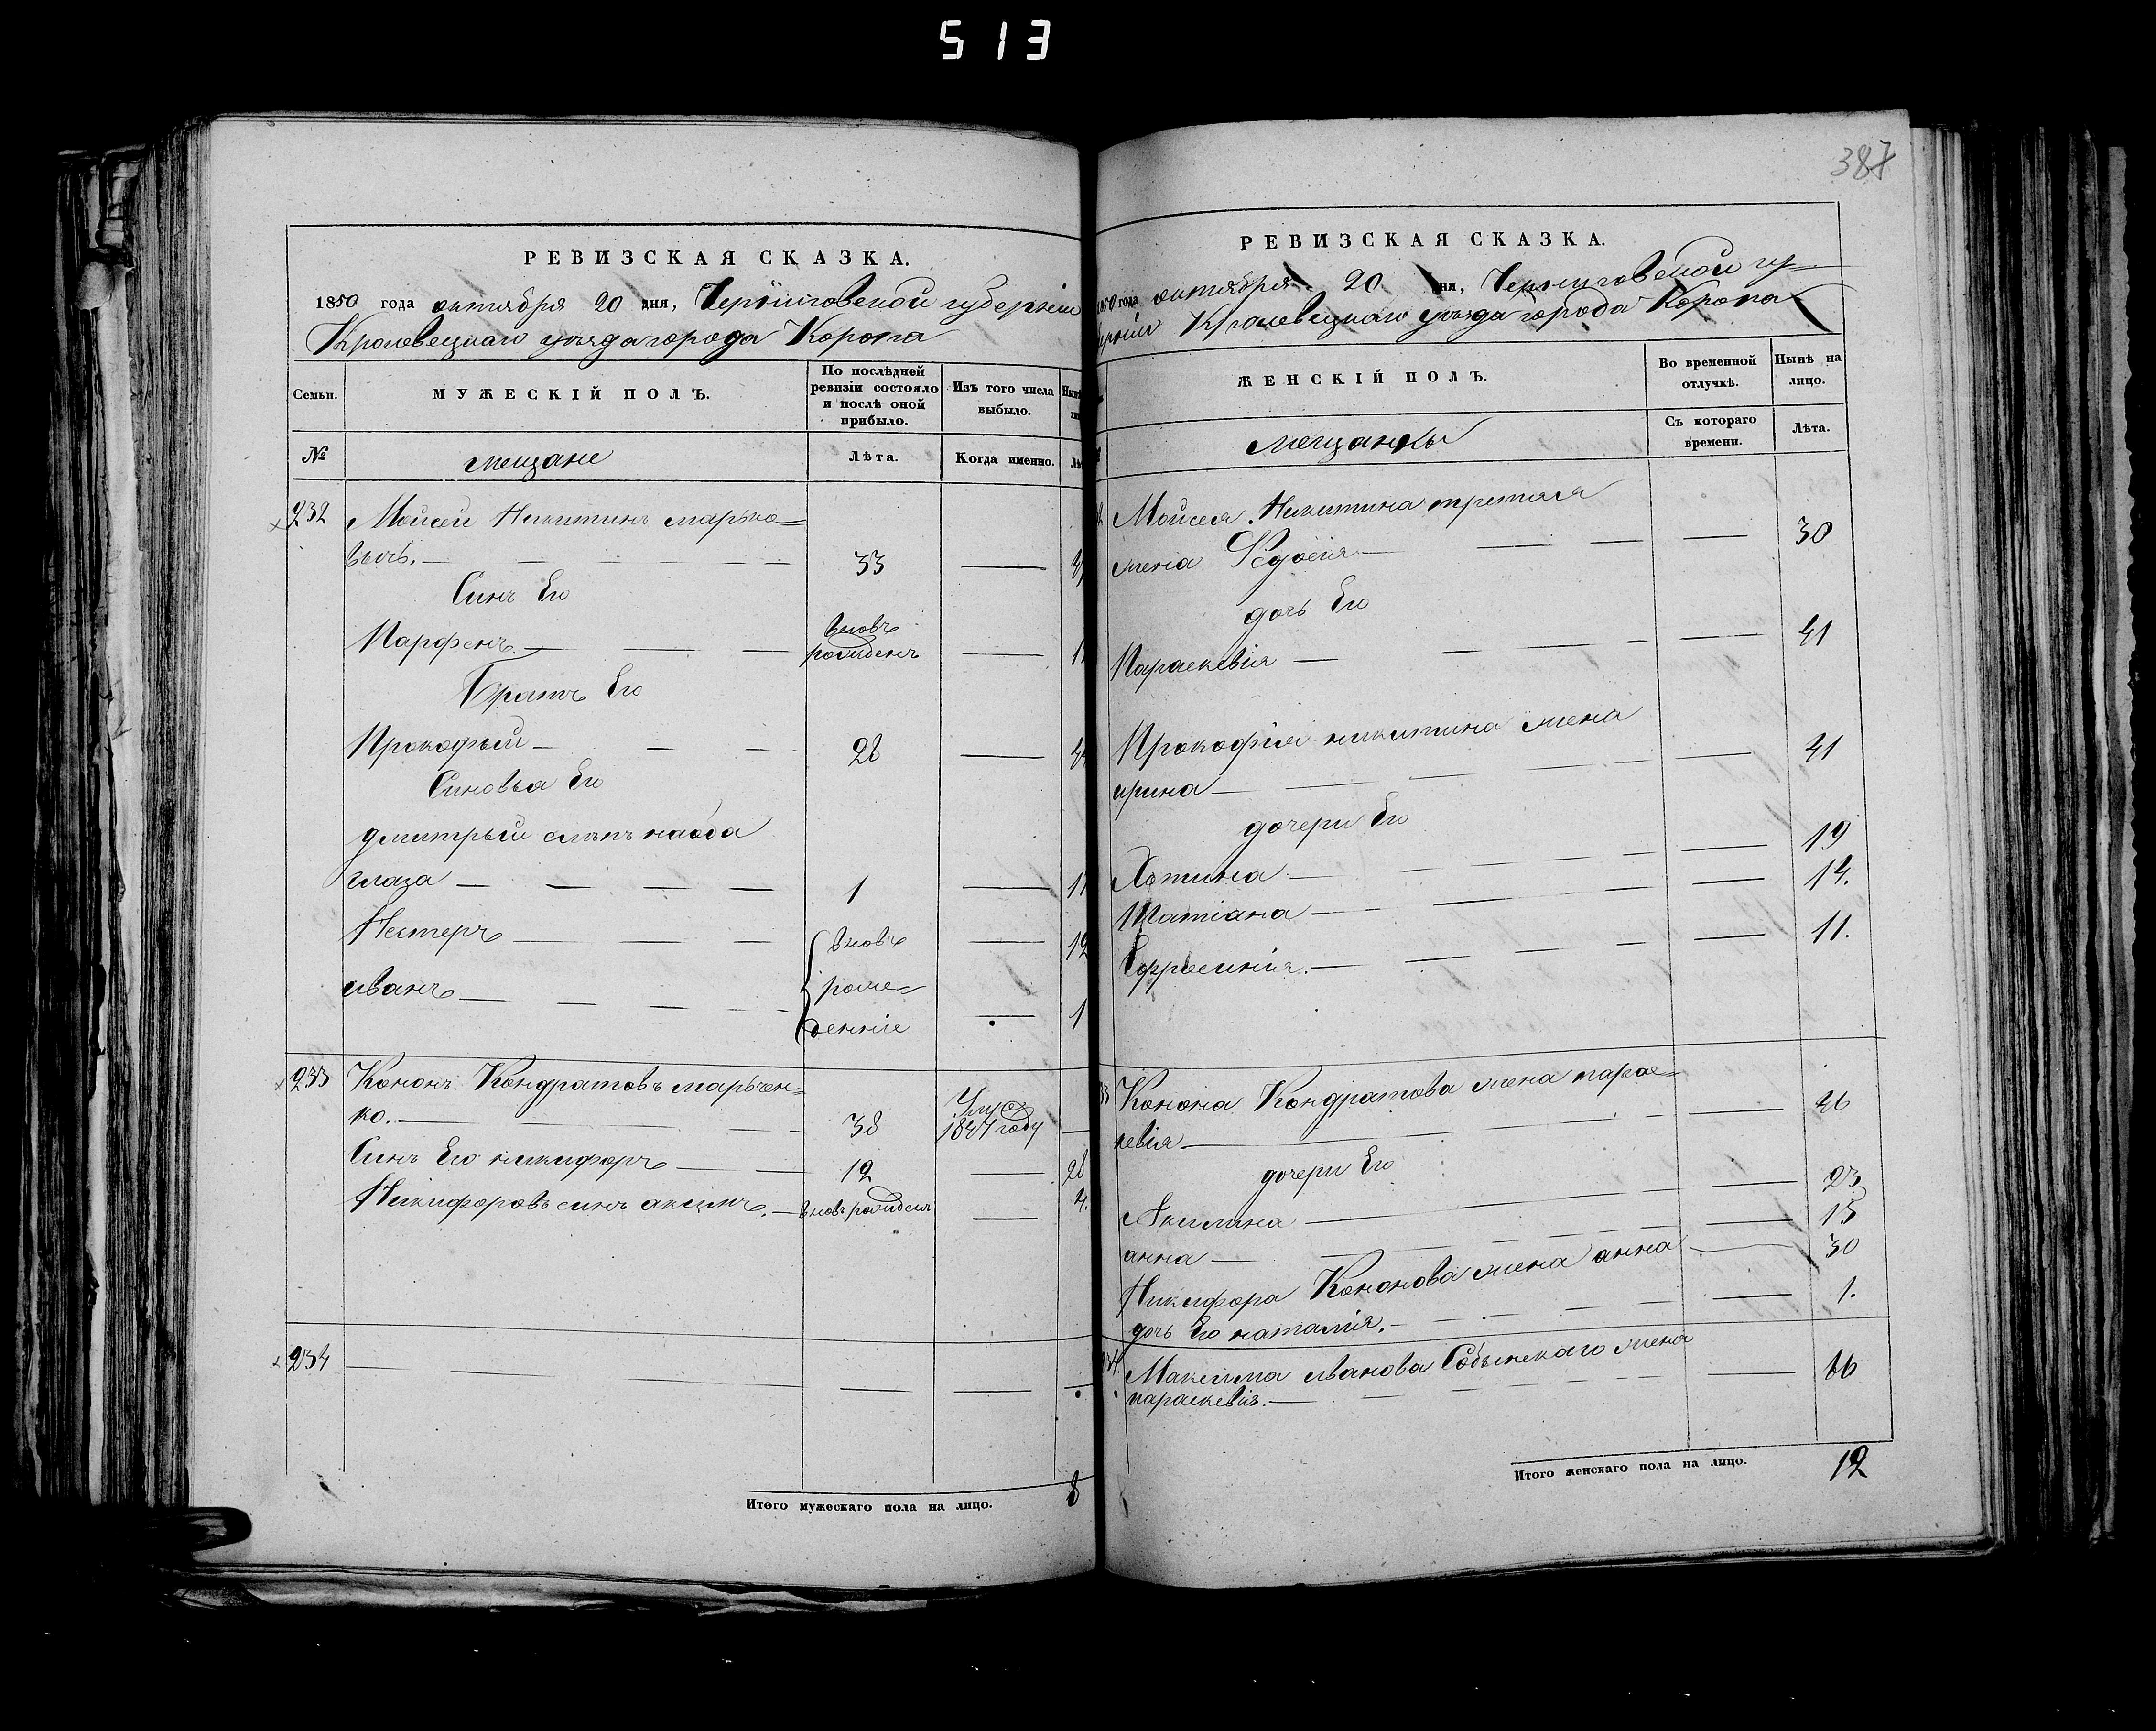 513
РЕВИЗСКАЯ СКАЗКА.
1850 года октября 20 дня, Черниговской губерніи
Кролевецкаго уѣзда города Коропа
Семьи.
МУЖЕСКІЙ ПОЛЪ.
По послѣдней ревизіи состояло и послѣ оной прибыло.
Изъ того числа выбыло.
№
мещане
Лѣта.
Когда именно.
232 Мойсей Никитинъ марько=
вичъ. 33
Синъ Его
Парфенъ вновь рожденъ
Братъ Его
Прокофый 28
Синовья Его
дмитрый слѣпъ наоба
глаза 1
Нестеръ вновь 12
иванъ роже= 1
денніе
233 Кононъ Кондратовъ марьчен=
ко. 38 Умре 1847 году
Синъ Его никифоръ 12 28
Никифоровъ синъ акимъ. вновь рожденъ 4.
234
Итого мужескаго пола на лицо. 8
387
РЕВИЗСКАЯ СКАЗКА.
года октября 20 дня, Черниговской гу=
Кролевецкаго уѣзда города Коропа
ЖЕНСКІЙ ПОЛЪ.
Во временной отлучкѣ.
Нынѣ на лицо.
мещанкы
Съ котораго времени.
Лѣта.
Мойсея Никитина третяя
жена Федосия 30
дочь Его
Параскевія 41
Прокофія никитина жена
ирина 41
дочери Его
19
Татіана 14.
Ефросинія. 11.
Конона Кондратова жена парас=
кевія 46
дочери Его
Акилина 23
анна 15
Никифора Кононова жена анна 30
дочь Его наталія. 1.
Максима иванова жена
параскевія. 66
Итого женскаго пола на лицо. 12